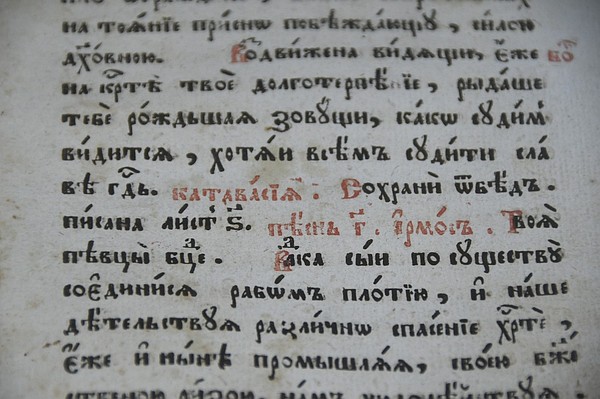 на тоѧ́нїе при́снѡ побѣжда́ющꙋ , си́лою
дꙋхо́вною. Водви́жена ви́дѧщи , є҆́же
на крⷭ҇тѣ̀ твоѐ долготерпѣ́нїе , рыда́ше
тебѐ ро́ждьшаѧ зовꙋ́щи , ка́кѡ сꙋди́мⸯ
ви́дитсѧ , хотѧ́и всѣ́мъ сꙋди́ти сла́
вѣ гдⷭ҇ь. катава́сїѧ : Сохранѝ ѿбѣ́дъ .
пи́сана листⸯ ѕ҃. пѣ́снь г҃. і҆рмо́съ . Твоѧ̀
пѣвцы̀ бц҃е . Вⷧ҇ка сы́и по сꙋществꙋ̀
соедини́сѧ рабѡ́мъ пло́тїю , и҆ на́ше
дѣ́тельствꙋѧ разли́чнѡ спасе́нїе хрⷭ҇тѐ ,
є҆́же и҆ ны́нѣ промышлѧ́ѧ , свое́ю бж҃е